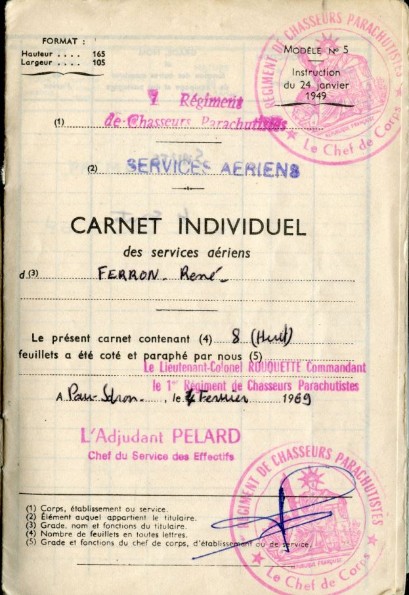 FORMAT :
Hauteur .... 165
Largeur .... 105
MODÈLE N° 5
Instruction
du 24 janvier
1949
RÉGIMENT DE CHASSEURS PARACHUTISTES
★ Le Chef de Corps ★
1 Régiment
(1) de Chasseurs Parachutistes
(2) SERVICES AERIENS
CARNET INDIVIDUEL
des services aériens
d (3) FERRON René
Le présent carnet contenant (4) 8 (Huit)
feuillets a été coté et paraphé par nous (5)
Le Lieutenant-Colonel ROUQUETTE Commandant
le 1er Régiment de Chasseurs Parachutistes
A Pau, le Février 1969
L'Adjudant PELARD
Chef du Service des Effectifs
RÉGIMENT DE CHASSEURS PARACHUTISTES
République Française
★ Le Chef de Corps ★
(1) Corps, établissement ou service.
(2) Élément auquel appartient le titulaire.
(3) Grade, nom et fonctions du titulaire.
(4) Nombre de feuillets en toutes lettres.
(5) Grade et fonctions du chef de corps, d'établissement ou de service.